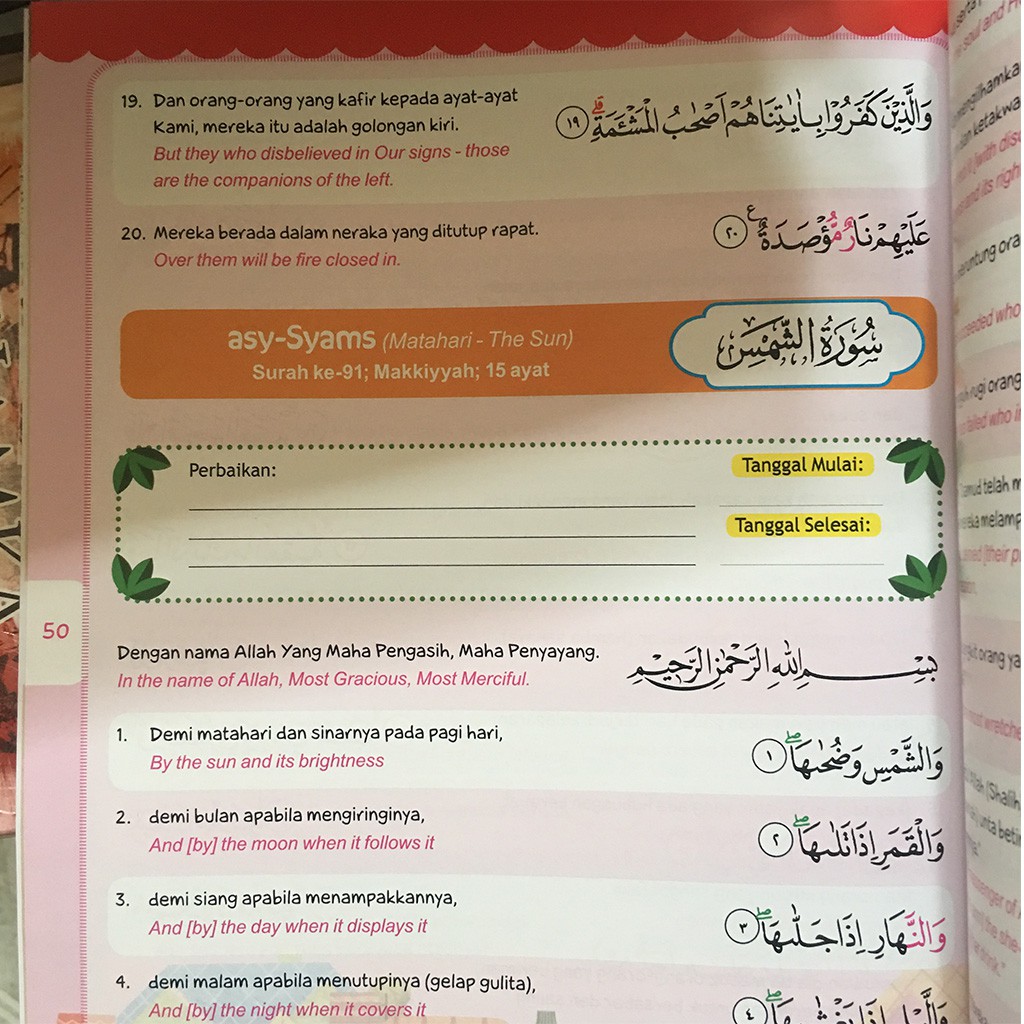 19. Dan orang-orang yang kafir kepada ayat-ayat
Kami, mereka itu adalah golongan kiri.
But they who disbelieved in Our signs - those
are the companions of the left.
وَالَّذِيْنَ كَفَرُوْا بِاٰيٰتِنَا هُمْ اَصْحٰبُ الْمَشْـَٔمَةِۗ ١٩
20. Mereka berada dalam neraka yang ditutup rapat.
Over them will be fire closed in.
عَلَيْهِمْ نَارٌ مُّؤْصَدَةٌ ࣖ ٢٠
asy-Syams (Matahari - The Sun)
Surah ke-91; Makkiyyah; 15 ayat
سُوْرَةُ الشَّمْسِ
Perbaikan:
Tanggal Mulai:
Tanggal Selesai:
50
Dengan nama Allah Yang Maha Pengasih, Maha Penyayang.
In the name of Allah, Most Gracious, Most Merciful.
بِسْمِ اللّٰهِ الرَّحْمٰنِ الرَّحِيْمِ
1. Demi matahari dan sinarnya pada pagi hari,
By the sun and its brightness
وَالشَّمْسِ وَضُحٰىهَاۖ ١
2. demi bulan apabila mengiringinya,
And [by] the moon when it follows it
وَالْقَمَرِ اِذَا تَلٰىهَاۖ ٢
3. demi siang apabila menampakkannya,
And [by] the day when it displays it
وَالنَّهَارِ اِذَا جَلّٰىهَاۖ ٣
4. demi malam apabila menutupinya (gelap gulita),
And [by] the night when it covers it
وَالَّيْلِ اِذَا يَغْشٰىهَاۖ ٤